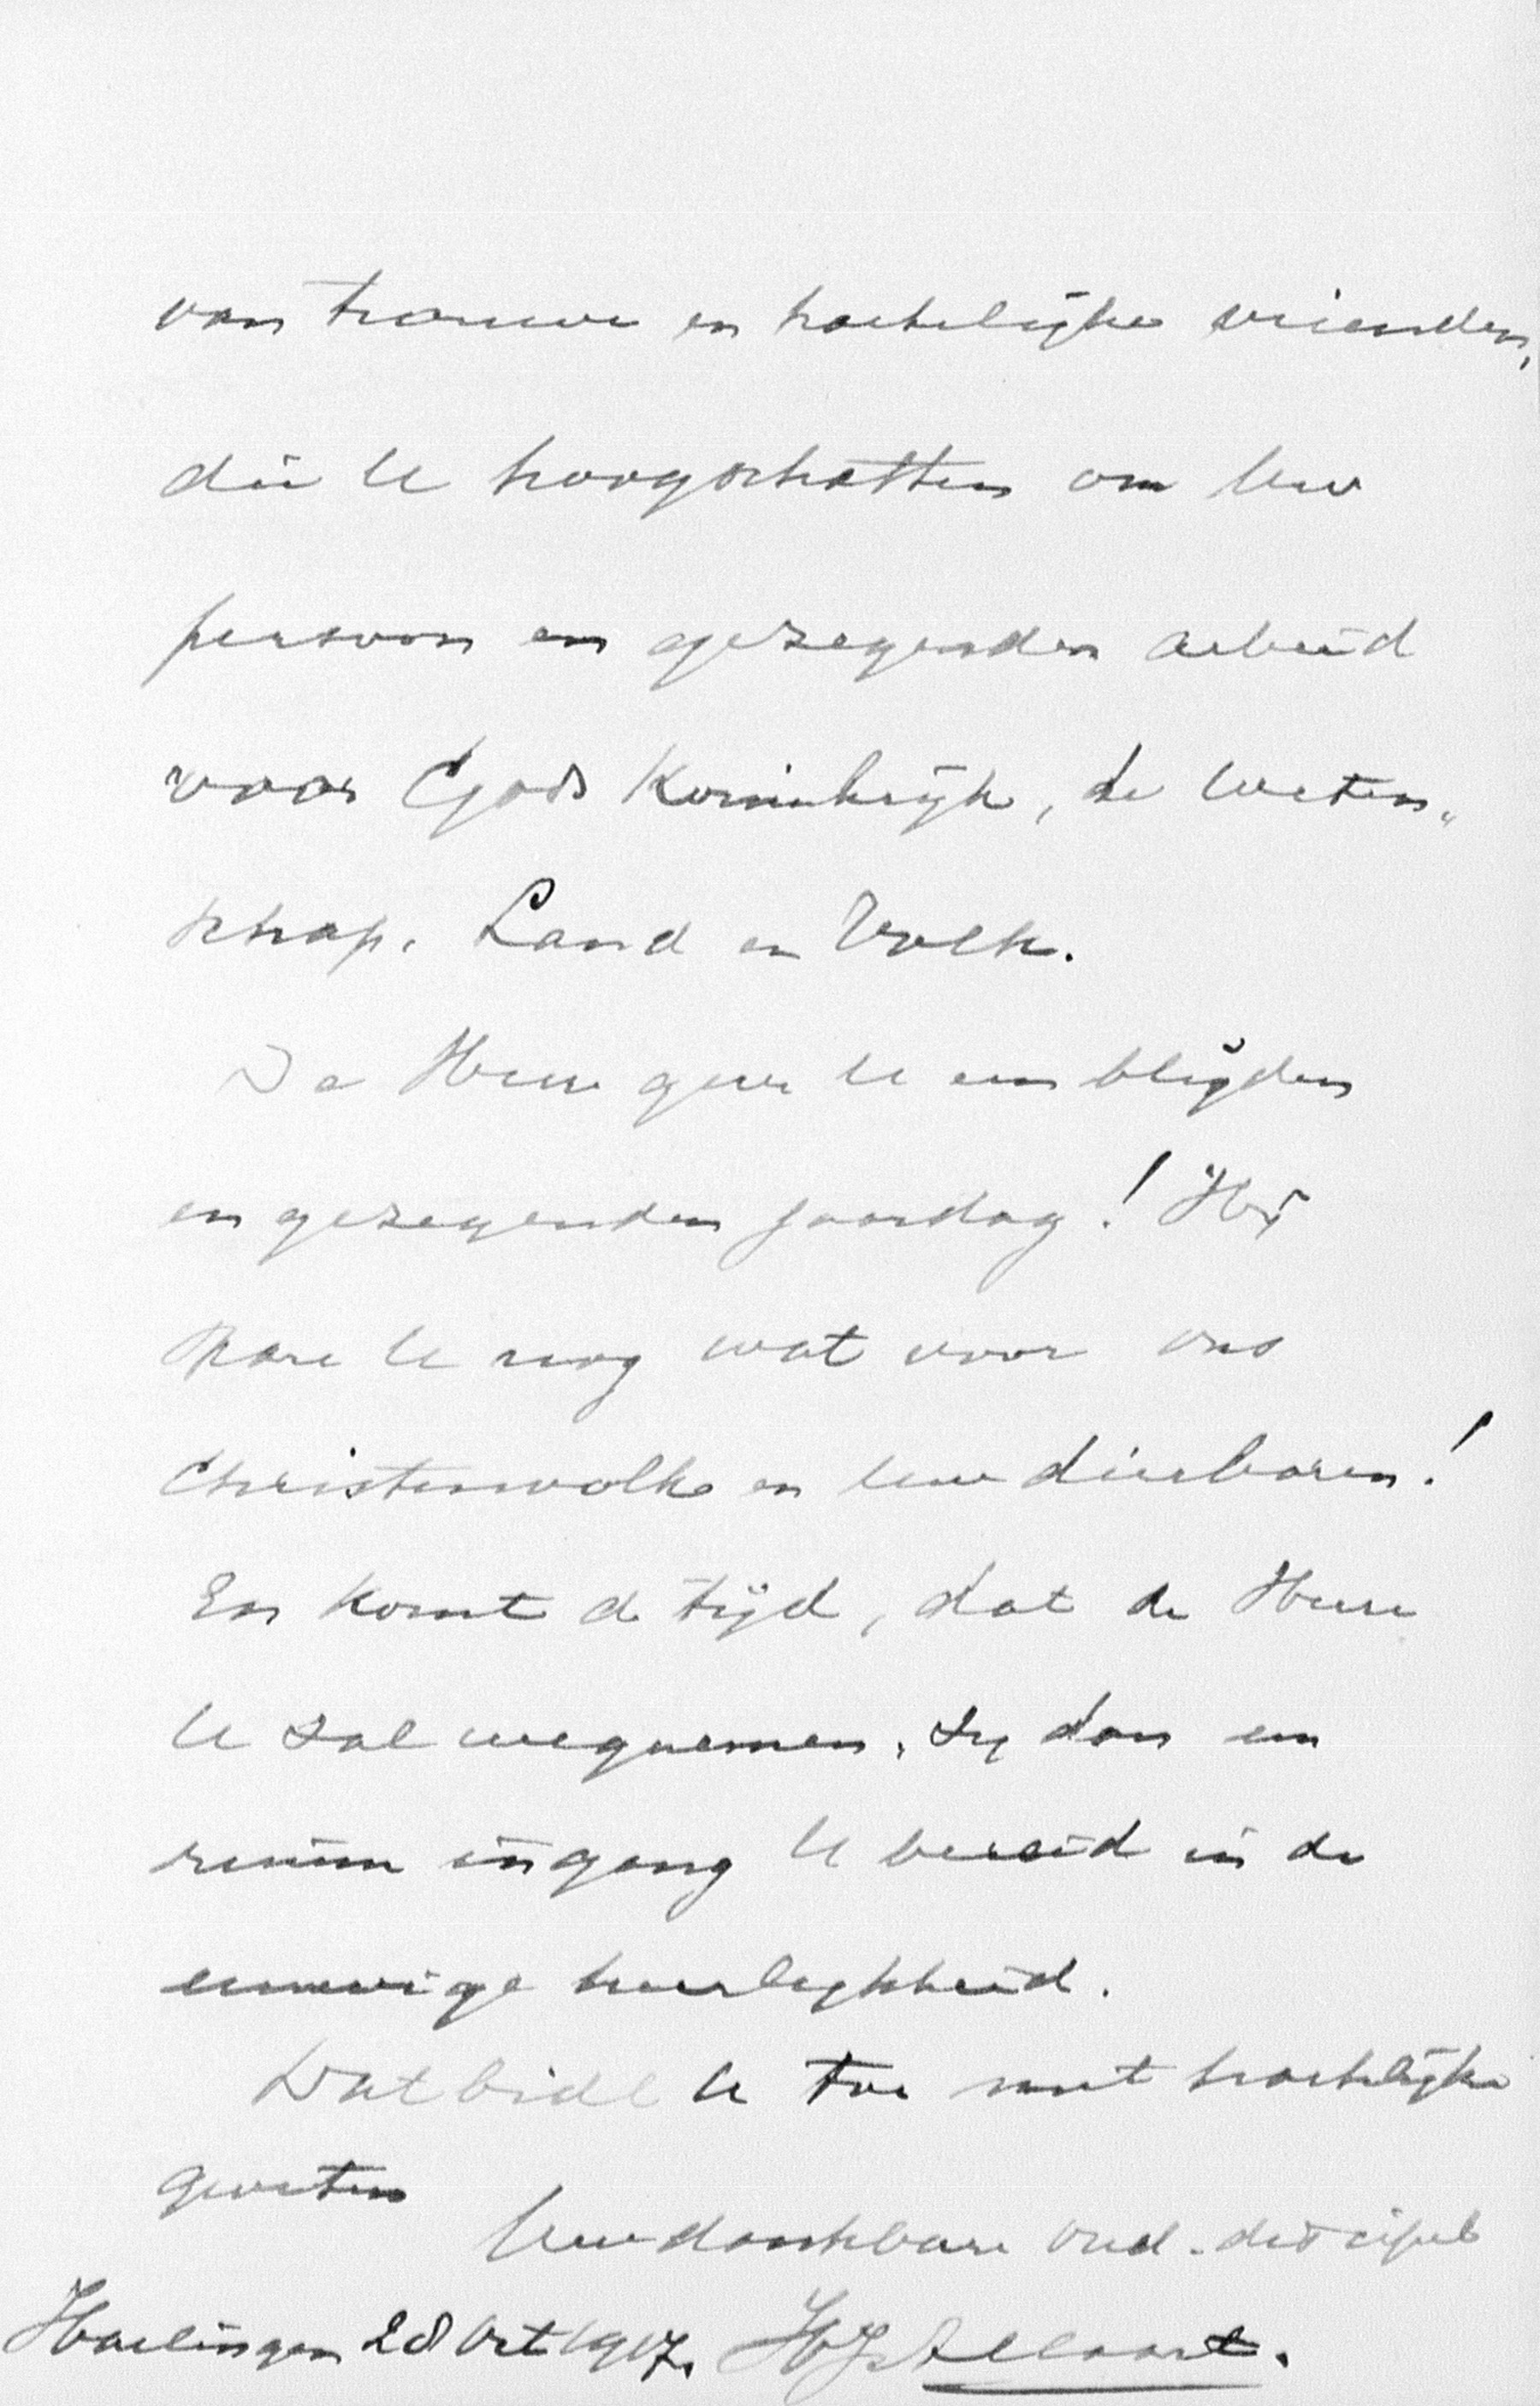 van trouwe en hartelijke vrienden,
die U hoogschatten om Uw
persoon en gezegenden arbeid
voor Gods Koninkrijk, de Weten„
schap, Land en Volk.
De Heere geve U een blijden
en gezegenden jaardag! Hij
spare U nog wat voor ons
Christenvolk en Uw dierbaren!
En komt de tijd, dat de Heere
U zal wegnemen, zij dan een
ruime ingang U bereid in de
eeuwige heerlijkheid.
Dat bidt U toe met hartelijke
groeten
Uw dankbare oud-discipel
Harlingen 28 Oct 1917.